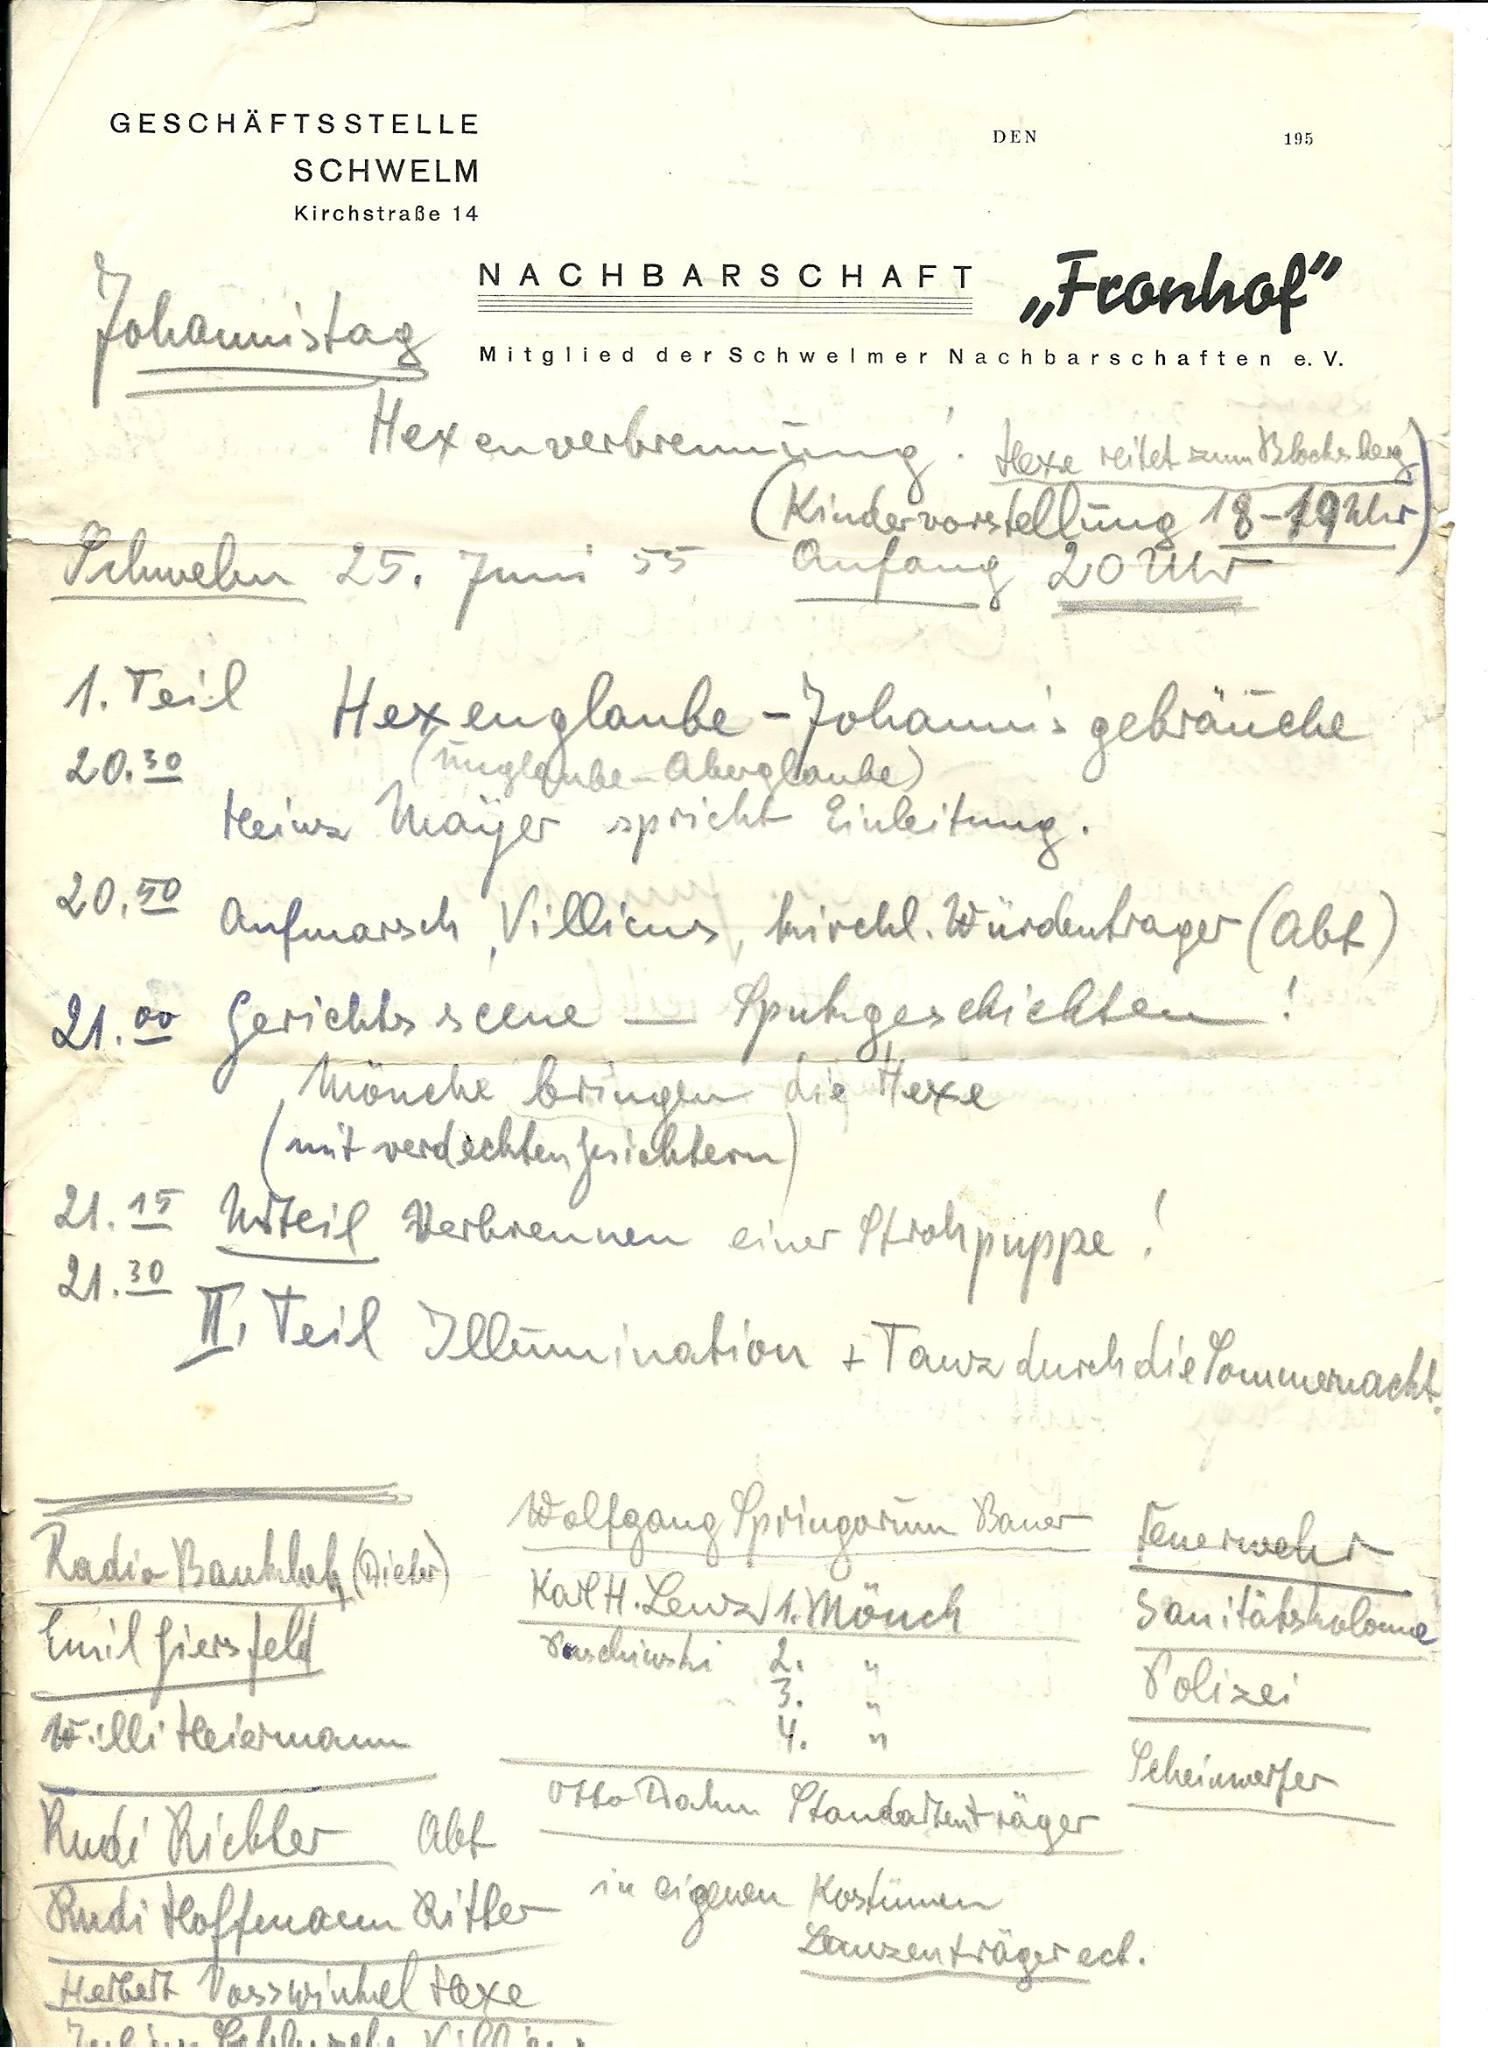 GESCHÄFTSSTELLE
SCHWELM
Kirchstraße 14
DEN 195
NACHBARSCHAFT „Fronhof”
Mitglied der Schwelmer Nachbarschaften e. V.
Johannistag
Hexenverbrennung! Hexe reitet zum Blocksberg
(Kindervorstellung 18-19 Uhr)
Schwelm 25. Juni 55 Anfang 20 Uhr
1. Teil Hexenglaube - Johannisgebräuche
20.30 (Unglaube - Aberglaube)
Heinz Mayer spricht Einleitung.
20.50 Aufmarsch, Villicus, kirchl. Würdentrager (Abt)
21.00 Gerichtsscene — Spukgeschichten!
Mönche bringen die Hexe
(mit verdeckten Gesichtern)
21.15 Urteil Verbrennen einer Strohpuppe!
21.30
II. Teil Illumination + Tanz durch die Sommernacht.
Radio (Dieter)
Emil Giersfeld
Willi Heiermann
Rudi Richter Abt
Rudi Hoffmann Ritter
Herbert Vosswinkel Hexe
Wolfgang Springorum Bauer
Karl H. Lenz 1. Mönch
2. "
3. "
4. "
Otto Dahm Standartenträger
in eigenen Kostümen
Lanzenträger ect.
Feuerwehr
Sanitätskolonne
Polizei
Scheinwerfer